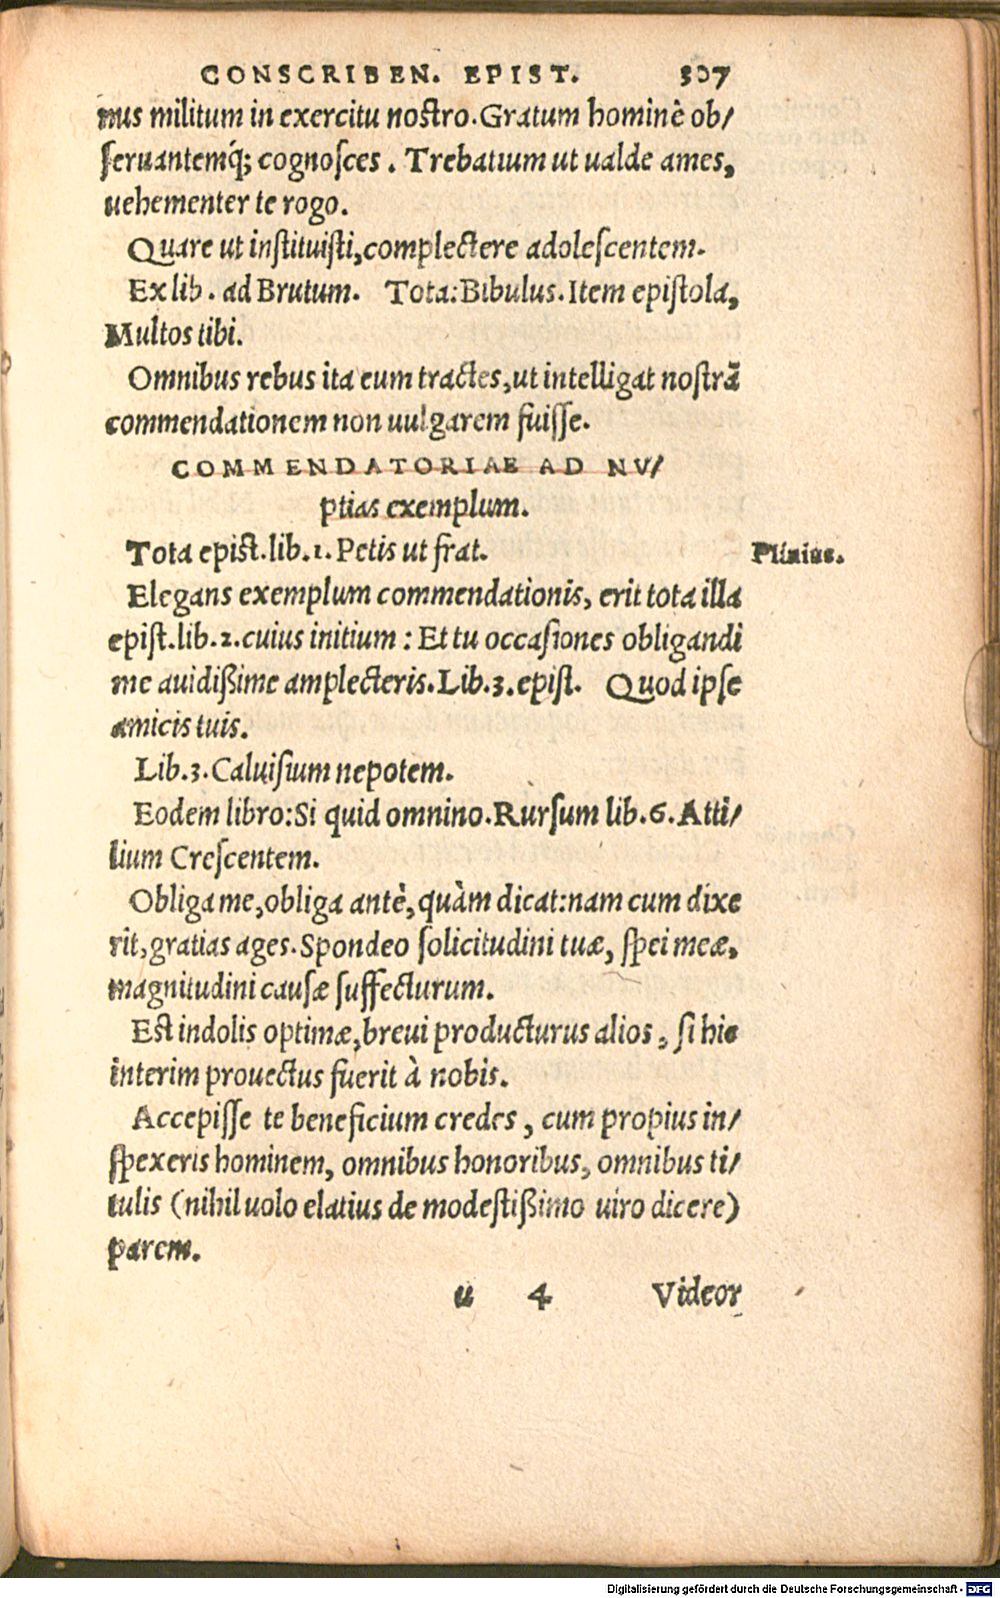 CONSCRIBEN. EPIST. 307
mus militum in exercitu nostro. Gratum hominẽ ob/
seruantemq́; cognosces. Trebatium ut ualde ames,
uehementer te rogo.
Quare ut instituisti, complectere adolescentem.
Ex lib. ad Brutum. Tota: Bibulus. Item epistola,
Multos tibi.
Omnibus rebus ita eum tractes, ut intelligat nostrã
commendationem non uulgarem fuisse.
COMMENDATORIAE AD NV/
ptias exemplum.
Tota epist. lib. 1. Petis ut frat.
Plinius.
Elegans exemplum commendationis, erit tota illa
epist. lib. 2. cuius initium: Et tu occasiones obligandi
me auidißime amplecteris. Lib. 3. epist. Quod ipse
amicis tuis.
Lib. 3. Caluisium nepotem.
Eodem libro: Si quid omnino. Rursum lib. 6. Atti/
lium Crescentem.
Obliga me, obliga antè, quàm dicat: nam cum dixe
rit, gratias ages. Spondeo solicitudini tuæ, spei meæ,
magnitudini causæ suffecturum.
Est indolis optimæ, breui producturus alios, si hic
interim prouectus fuerit à nobis.
Accepisse te beneficium credes, cum propius in/
spexeris hominem, omnibus honoribus, omnibus ti/
tulis (nihil uolo elatius de modestißimo uiro dicere)
parem.
u 4 Videor
Digitalisierung gefördert durch die Deutsche Forschungsgemeinschaft - DFG